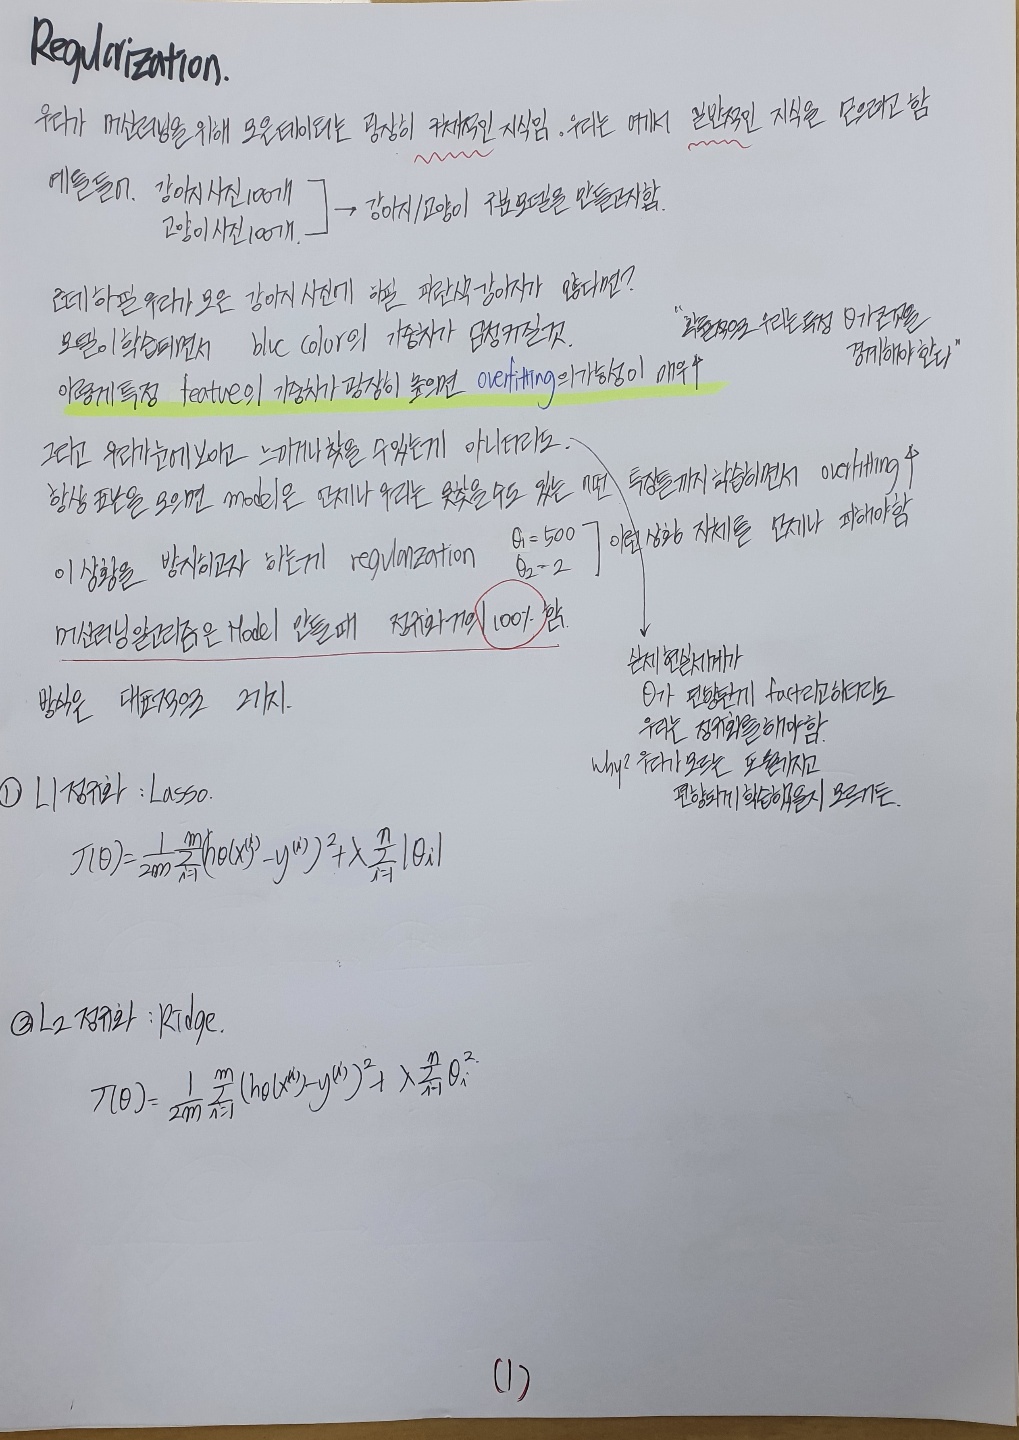 Regularization.
우리가 머신러닝을 위해 모은 데이터는 굉장히 구체적인 지식임. 우리는 여기서 일반적인 지식을 모으려고 함
예를들어. 강아지 사진 100개
고양이 사진 100개.
→ 강아지/고양이 구분모델을 만들고자함.
근데 하필 우리가 모은 강아지 사진에 하필 파란색 강아지가 많다면?
모델이 학습되면서 blue color의 가중치가 엄청커질것.
"결론적으로 우리는 특정 θ가 큰것을
경계해야 한다"
이렇게 특정 feature의 가중치가 굉장히 높으면 overfitting의 가능성이 매우↑
그리고 우리가 눈에 보이고 느끼거나 찾을 수 있는게 아니더라도.
항상 표본을 모으면 model은 언제나 우리는 못찾을수도 있는 어떤 특징들까지 학습하면서 overfitting↑
이 상황을 방지하고자 하는게 regularization
θ₁=500
θ₂=2
이런 상황 자체를 언제나 피해야함
머신러닝 알고리즘은 Model 만들 때 정규화 거의 100% 함.
실제 현실세계가
θ가 편향된게 fact라고 하더라도
우리는 정규화를 해야함.
why? 우리가 모으는 표본가지고
편향되게 학습했을지 모르거든.
방식은 대표적으로 2가지.
① L1 정규화 : Lasso.
J(θ)=1/2m Σ_{i=1}^{m}(hθ(x⁽ⁱ⁾)-y⁽ⁱ⁾)²+λ Σ_{i=1}^{n}|θi|
② L2 정규화 : Ridge.
J(θ)= 1/2m Σ_{i=1}^{m}(hθ(x⁽ⁱ⁾)-y⁽ⁱ⁾)²+ λ Σ_{i=1}^{n} θi²
(1)